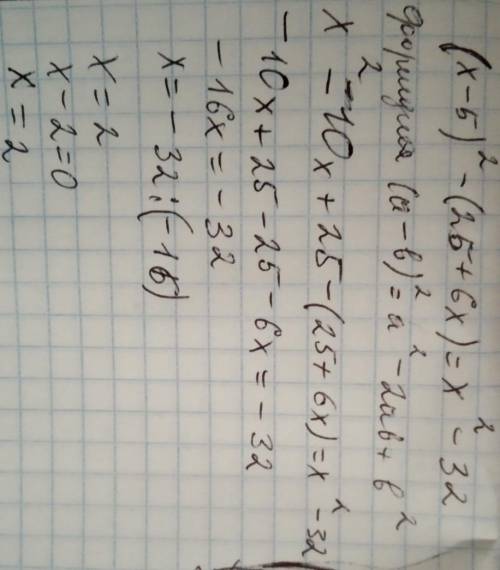 (x-5)² - (25+6x) = x² - 32
формула (a-b)² = a² - 2ab + b²
x² - 10x + 25 - (25+6x) = x² - 32
-10x + 25 - 25 - 6x = -32
-16x = -32
x = -32 : (-16)
x = 2
x - 2 = 0
x = 2